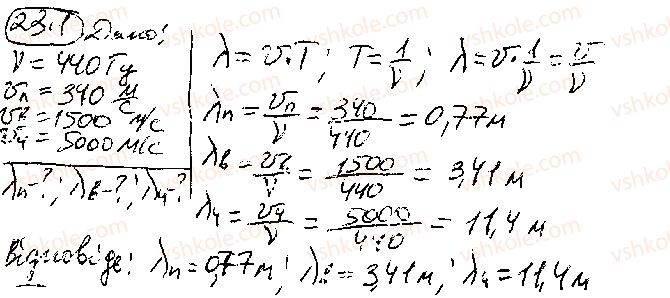 23.1 Дано:
ν = 440 Гц
vп = 340 м/с
vв = 1500 м/с
vч = 5000 м/с
λп-?; λв-?; λч-?
λ = v·T; T = 1/ν; λ = v·1/ν = v/ν
λп = vп/ν = 340/440 = 0,77 м
λв = vв/ν = 1500/440 = 3,41 м
λч = vч/ν = 5000/440 = 11,4 м
Відповідь: λп = 0,77 м; λв = 3,41 м; λч = 11,4 м
vshkole.com